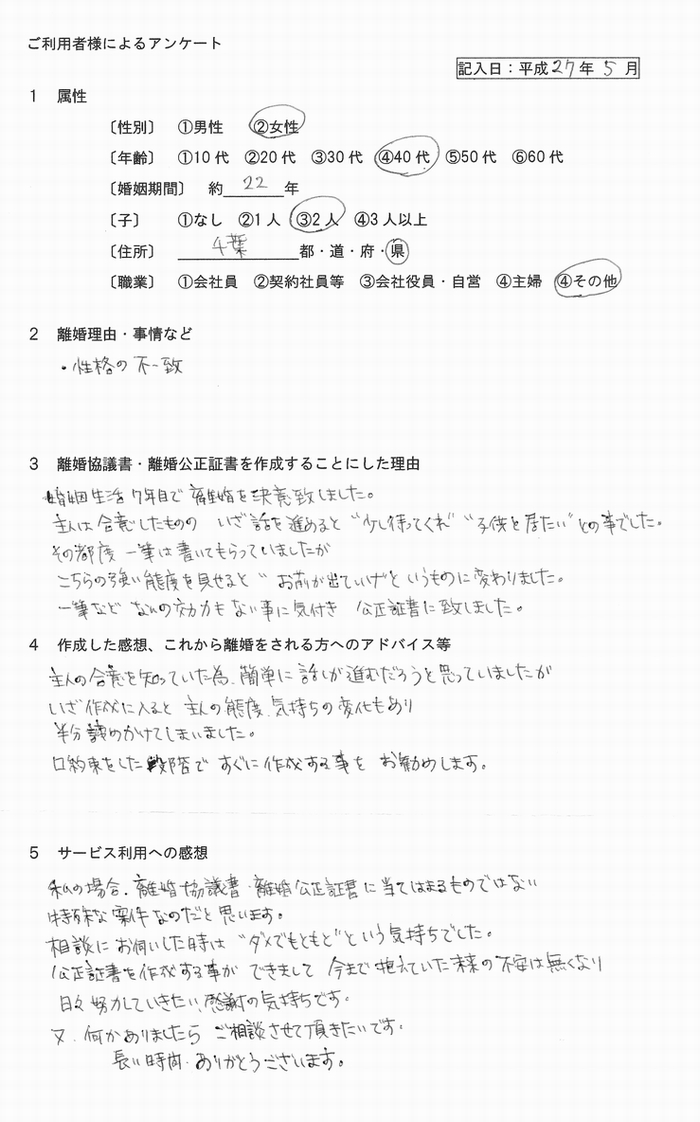 ご利用者様によるアンケート
記入日：平成27年 5 月
1 属性
〔性別〕 ①男性 ②女性
〔年齢〕 ①10代 ②20代 ③30代 ④40代 ⑤50代 ⑥60代
〔婚姻期間〕 約 22 年
〔子〕 ①なし ②1人 ③2人 ④3人以上
〔住所〕 千葉 都・道・府・県
〔職業〕 ①会社員 ②契約社員等 ③会社役員・自営 ④主婦 ④その他
2 離婚理由・事情など
・性格の不一致
3 離婚協議書・離婚公正証書を作成することにした理由
婚姻生活7年目で離婚を決意致しました。
主人は合意したものの いざ話を進めると"少し待ってくれ""子供と居たい"との事でした。
その都度 一筆は書いてもらっていましたが
こちらの強い態度を見せると"お前が出ていけ"というものに変わりました。
一筆など なんの効力もない事に気付き 公正証書に致しました。
4 作成した感想、これから離婚をされる方へのアドバイス等
主人の合意を知っていた為、簡単に話しが進むだろうと思っていましたが
いざ作成に入ると 主人の態度、気持ちの変化もあり
半分諦めかけてしまいました。
口約束をした段階で すぐに作成する事を お勧めします。
5 サービス利用への感想
私の場合、離婚協議書・離婚公正証書に当てはまるものではない
特殊な案件なのだと思います。
相談にお伺いした時は"ダメでもともと"という気持ちでした。
公正証書を作成する事が できまして 今まで抱えていた未来の不安は無くなり
日々努力していきたい、感謝の気持ちです。
又、何かありましたら ご相談させて頂きたいです。
長い時間、ありがとうございます。